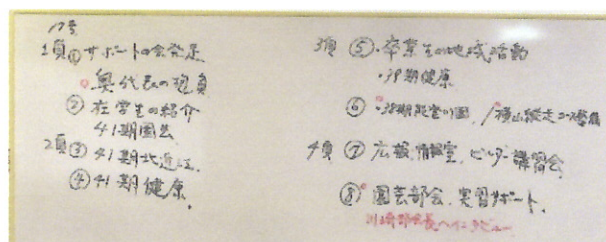 17号
1頁①サポートの会発足
奥代表の抱負
②在学生の紹介
41期園芸
2頁③41期北近江
④41期健康
3頁⑤・卒業生の地域活動
・39期健康
⑥
4頁⑦広報、情報室、ビルダー講習会
⑧園芸部会、実習サポート
川崎部会長へインタビュー